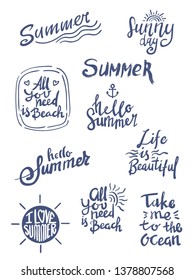 Summer
Sunny
day
All
you
need
is Beach
SUMMER
hello
Summer
hello
Summer
Life
is
Beautiful
I LOVE
SUMMER
All
you
need
is Beach
Take
me
to the
Ocean
shutterstock.com · 1378807568